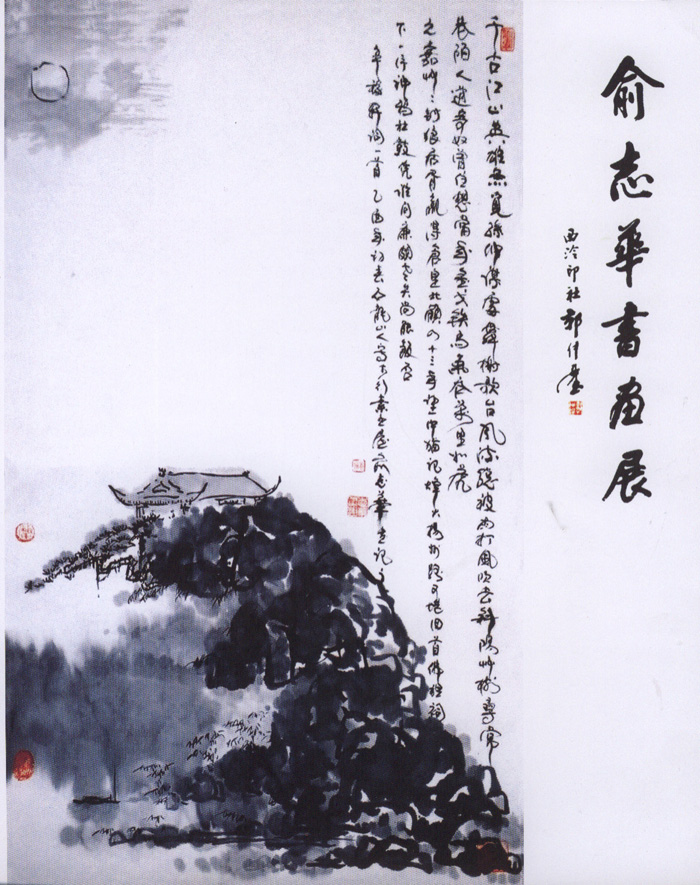 俞志華書画展
西泠印社
千古江山英雄無覓孫仲謀處舞榭歌台風流總被雨打風吹去斜陽草樹尋常
巷陌人道寄奴曾住想當年金戈鐵馬氣吞萬里如虎
元嘉草草封狼居胥贏得倉皇北顧四十三年望中猶記烽火揚州路可堪回首佛狸祠
下一片神鴉社鼓憑誰問廉頗老矣尚能飯否
辛稼軒詞一首乙酉年 俞志華